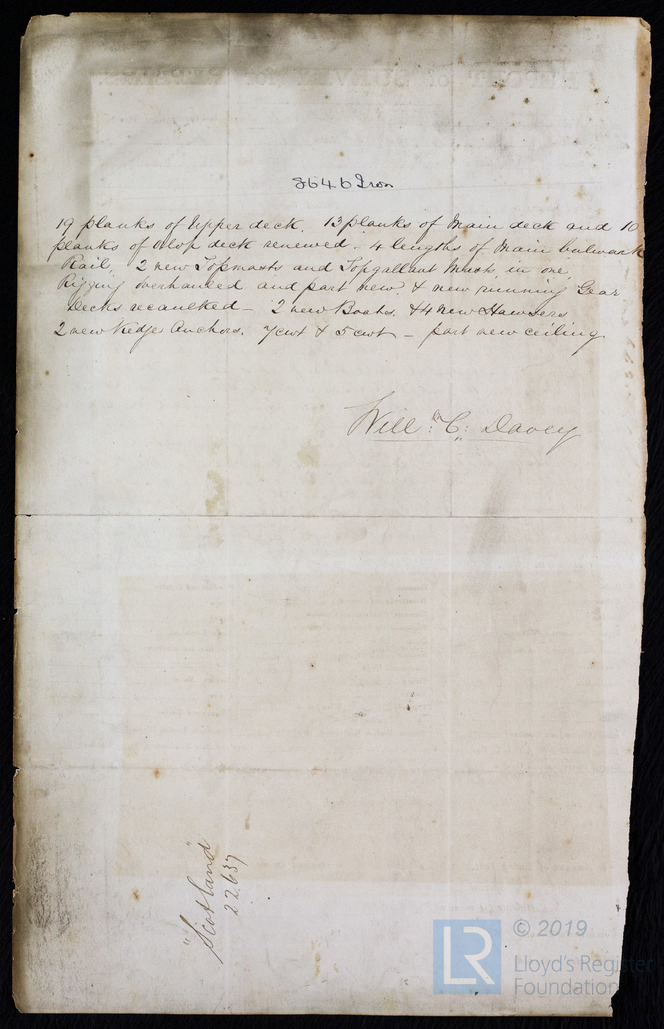 8646 Iron
19 planks of Upper deck. 13 planks of Main deck and 10
planks of Orlop deck renewed - 4 lengths of Main bulwark
Rail, 2 new Topmasts and Topgallant Masts in one,
Rigging overhauled and part new, & new running Gear
Decks recaulked - 2 new Boats. & 4 new Hawsers
2 new Kedge Anchors. 7 cwt & 5 cwt - part new ceiling
Will.m C. Davey
"Scotland"
22637
© 2019
LR
Lloyd's Register
Foundation